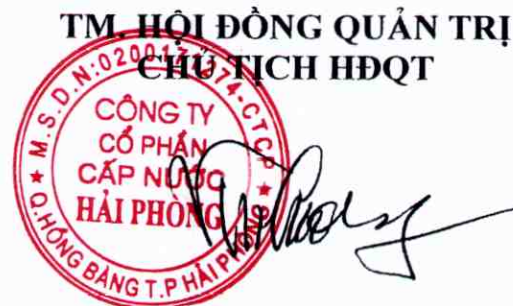 TM. HỘI ĐỒNG QUẢN TRỊ
CHỦ TỊCH HĐQT
CÔNG TY
CỔ PHẦN
CẤP NƯỚC
HẢI PHÒNG
Q.HỒNG BÀNG T.P HẢI PHÒNG